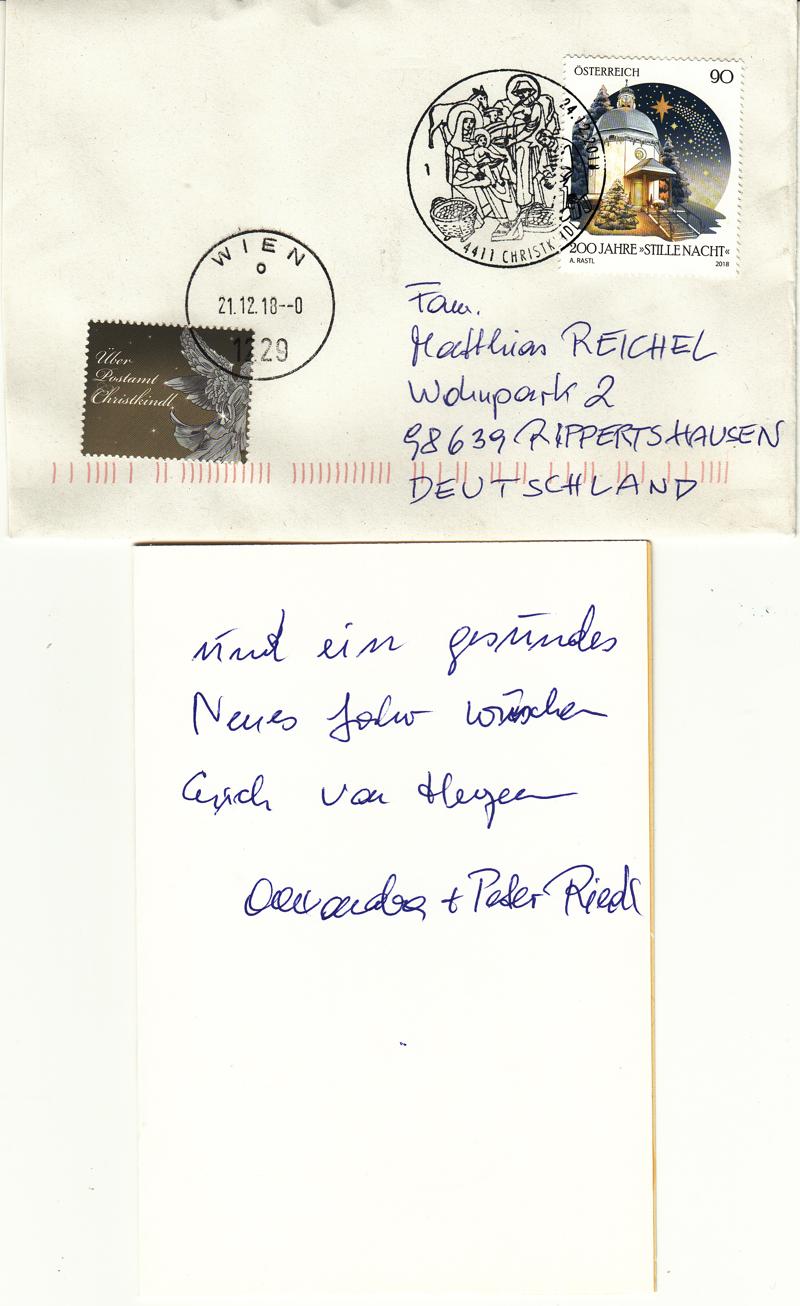 ÖSTERREICH 90
24.12.2018
1
4411 CHRISTKINDL
200 JAHRE »STILLE NACHT«
A. RASTL 2018
WIEN
o
21.12.18--0
1229
Über
Postamt
Christkindl
Fam.
Matthias REICHEL
Wohnpark 2
98639 RIPPERTSHAUSEN
DEUTSCHLAND
und ein gesundes
Neues Jahr wünschen
Euch von Herzen
+ Peter Riedl